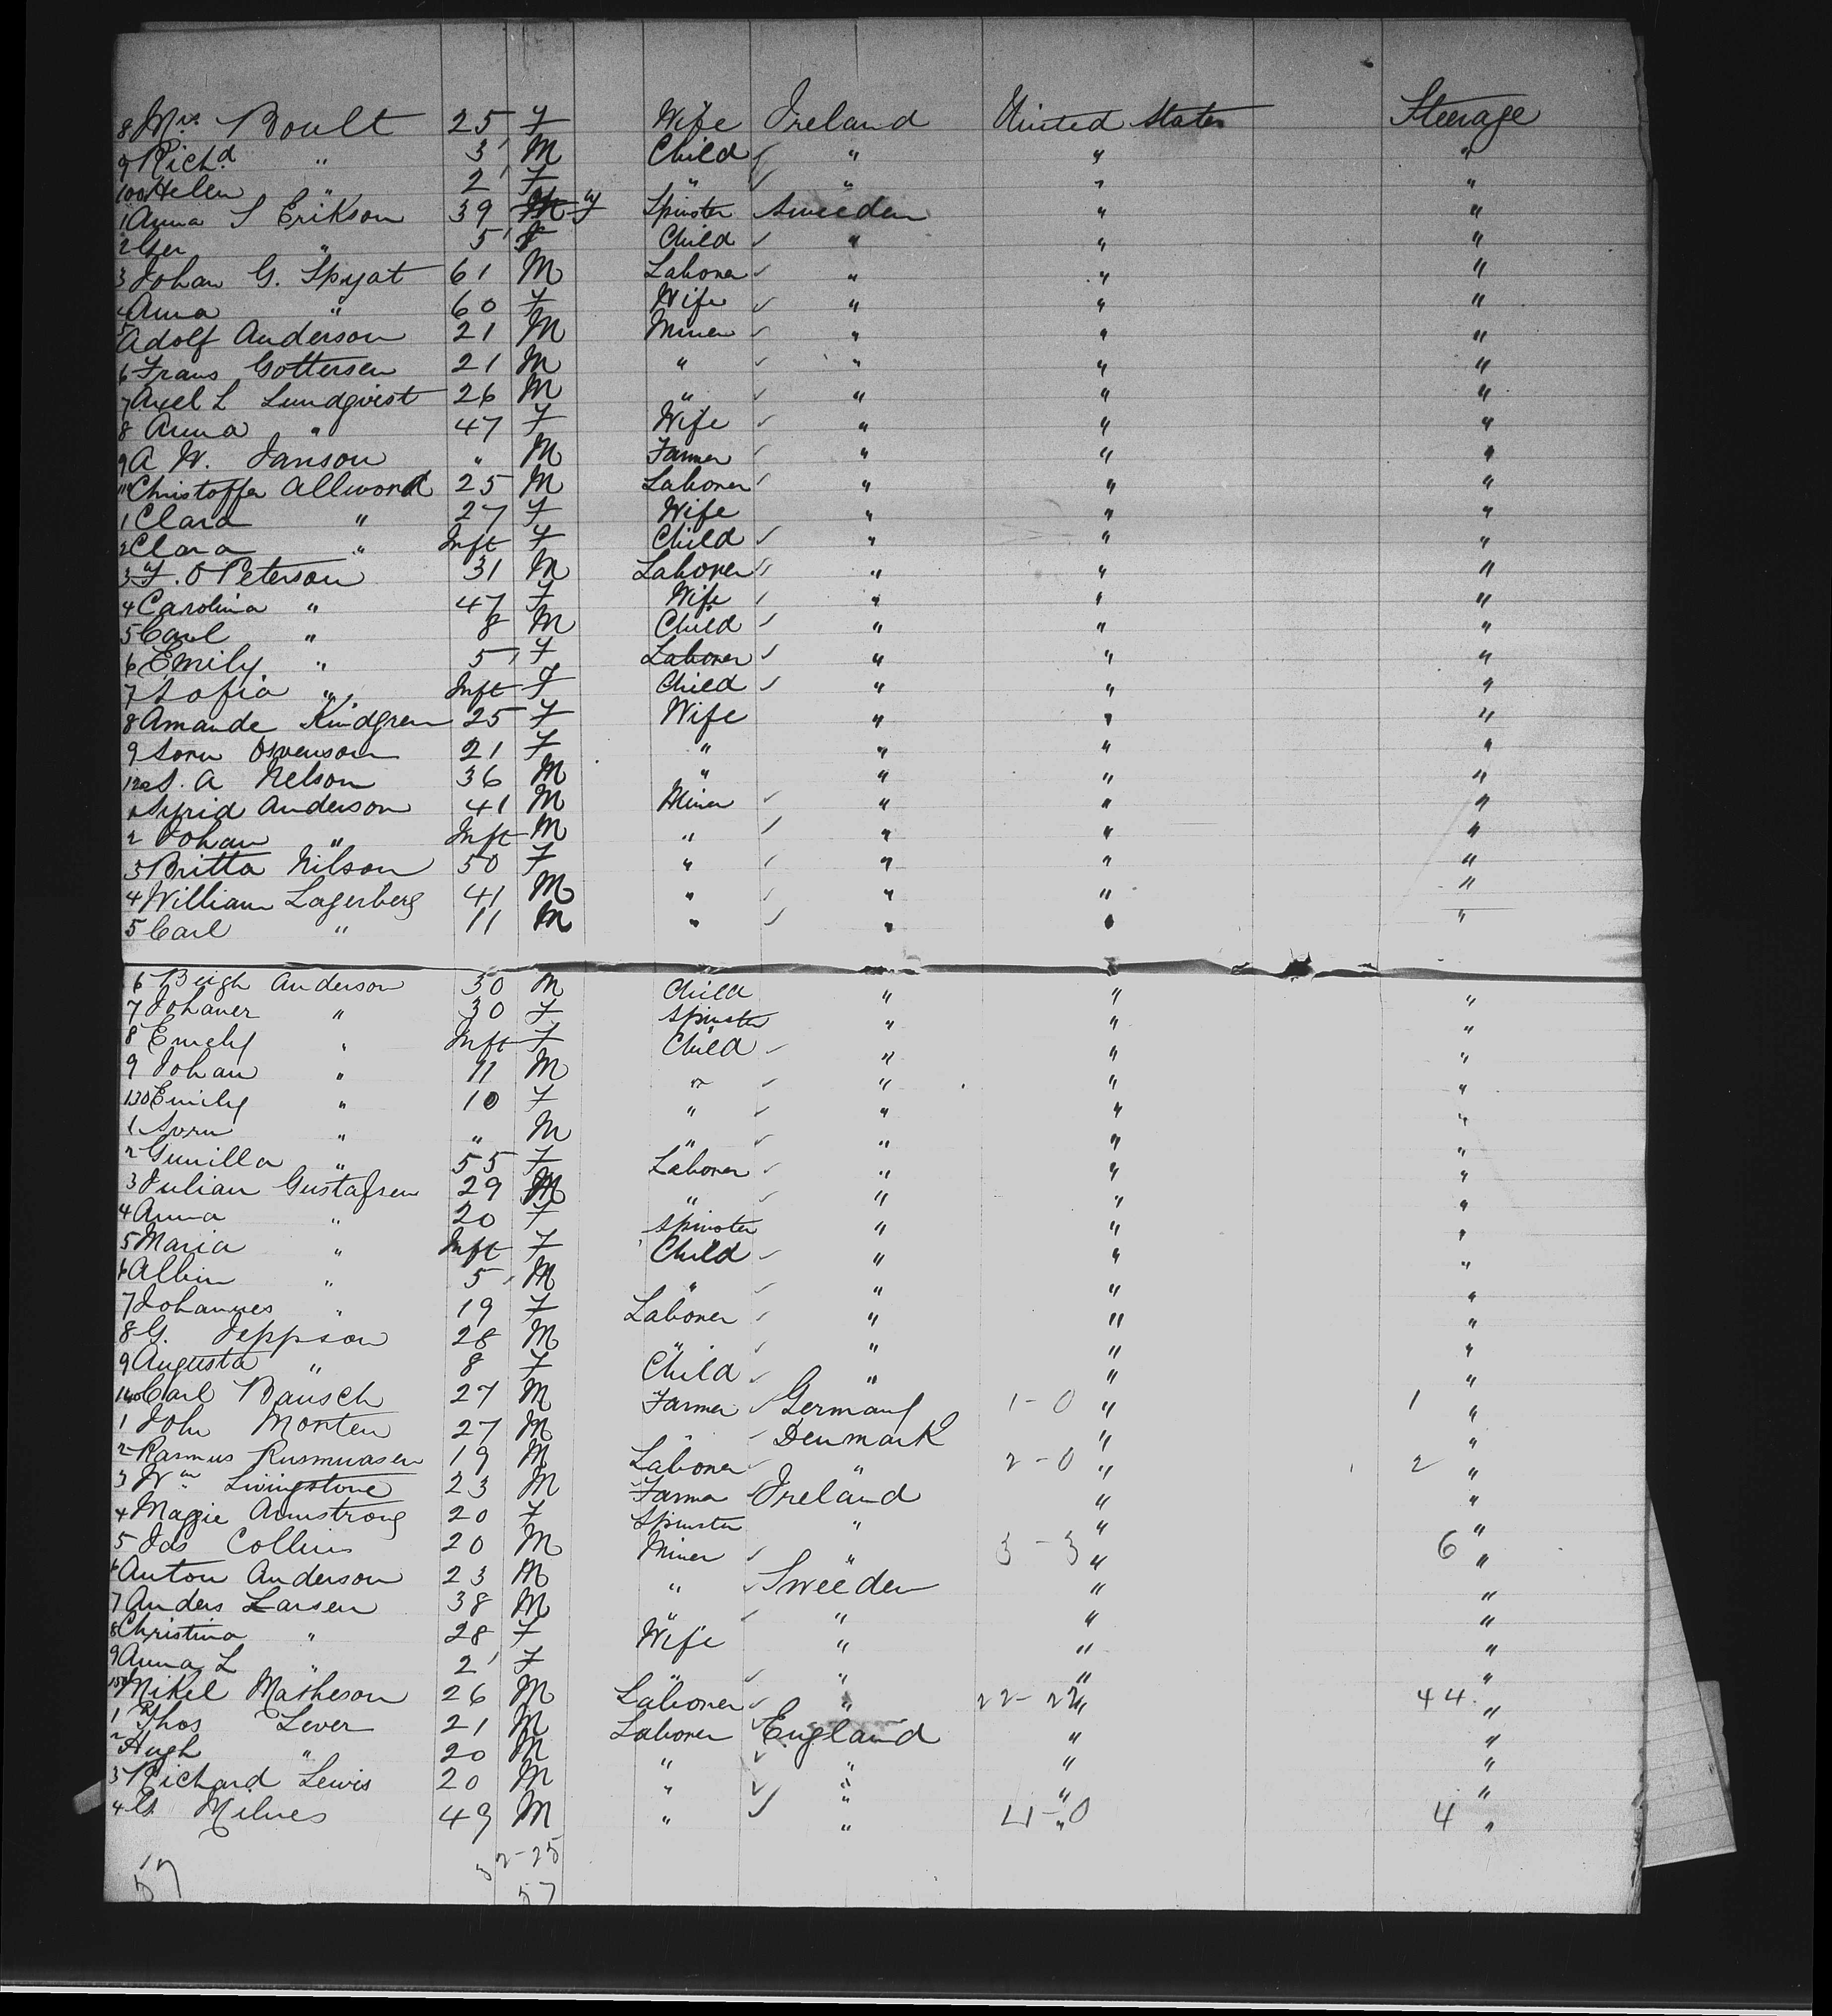 8 Mrs Boult 25 F Wife Ireland United States Steerage
9 Richd " 3 M Child " " "
100 Helen " 2 F " " " "
1 Anna S Erikson 39 F Spinster Sweeden " "
2 " 5 F Child " " "
3 Johan G. Spyat 61 M Laborer " " "
4 Anna " 60 F Wife " " "
5 Adolf Anderson 21 M Miner " " "
6 Frans Gottersen 21 M " " " "
7 Axel L Lundqvist 26 M " " " "
8 Anna " 47 F Wife " " "
9 A W. Janson " M Farmer " " "
110 Christoffer Allword 25 M Laborer " " "
1 Clara " 27 F Wife " " "
2 Clara " Inft F Child " " "
3 F. O Peterson 31 M Laborer " " "
4 Carolina " 47 F Wife " " "
5 Carl " 8 M Child " " "
6 Emily " 5 F Laborer " " "
7 Sofia " Inft F Child " " "
8 Amande Kindgren 25 F Wife " " "
9 Sorn Svenson 21 F " " " "
120 S. A Nelson 36 M " " " "
1 Sigrid Anderson 41 M Miner " " "
2 Johan " Inft M " " " "
3 Britta Nilson 50 F " " " "
4 William Lagerberg 41 M " " " "
5 Carl " 11 M " " " "
6 Beigh Anderson 30 M Child " " "
7 Johaner " 30 F Spinster " " "
8 Emely " Inft F Child " " "
9 Johan " 11 M " " " "
130 Emily " 10 F " " " "
1 Sorn " " M " " " "
2 Gunilla " 55 F Laborer " " "
3 Julian Gustafsen 29 M " " " "
4 Anna " 20 F Spinster " " "
5 Maria " Inft F Child " " "
6 Albin " 5 M " " " "
7 Johannes " 19 F Laborer " " "
8 G. Jeppson 28 M " " " "
9 Augusta " 8 F Child " " "
140 Carl Bausch 27 M Farmer Germany 1-0 " 1 "
1 John Morten 27 M " Denmark " "
2 Rasmus Rusmuasen 19 M Laborer " 2-0 " 2 "
3 Wm Livingstone 23 M Farmer Ireland " "
4 Maggie Armstrong 20 F Spinster " " "
5 Jas Collins 20 M Miner " 3-3 " 6 "
6 Anton Anderson 23 M " Sweeden " "
7 Anders Larsen 38 M " " " "
8 Christina " 28 F Wife " " "
9 Anna L " 2 F " " " "
150 Mikel Matheson 26 M Laborer " 22-22 " 44 "
1 Thos Lever 21 M Laborer England " "
2 Hugh " 20 M " " " "
3 Richard Lewis 20 M " " " "
4 G. Milnes 49 M " " 4-0 " 4 "
57 32-25
57